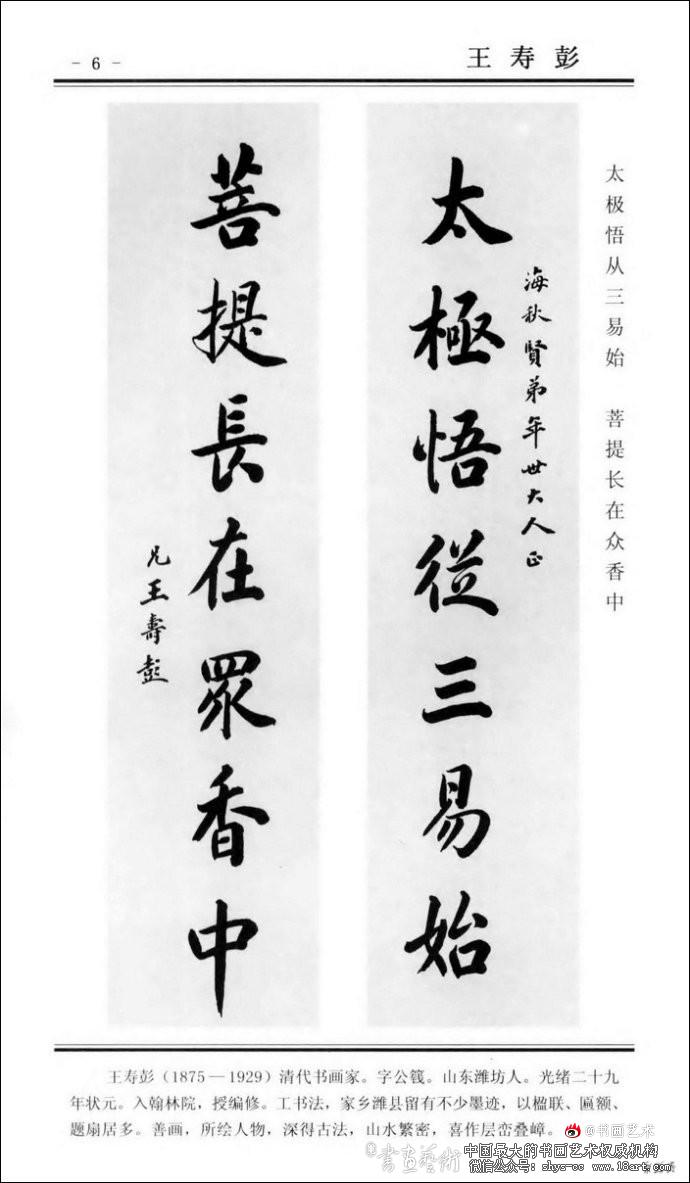 - 6 -
王寿彭
太极悟从三易始 菩提长在众香中
海秋賢弟年世大人正
太極悟從三易始
菩提長在眾香中
兄王壽彭
王寿彭（1875—1929）清代书画家。字公篯。山东潍坊人。光绪二十九
年状元。入翰林院，授编修。工书法，家乡潍县留有不少墨迹，以楹联、匾额、
题扇居多。善画，所绘人物，深得古法，山水繁密，喜作层峦叠嶂。
@书画艺术
书画艺術
中国最大的书画艺术权威机构
微信公众号：shys-cc www.18art.com